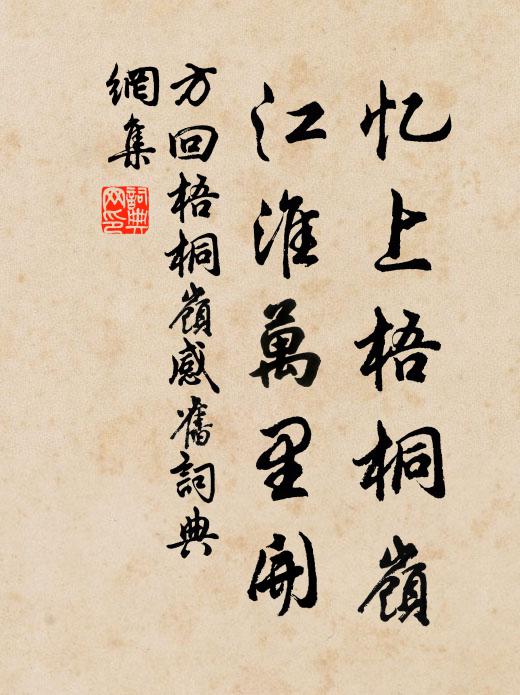 忆上梧桐嶺
江淮萬里開
方回梧桐嶺感舊詞典
網集
詞典网印